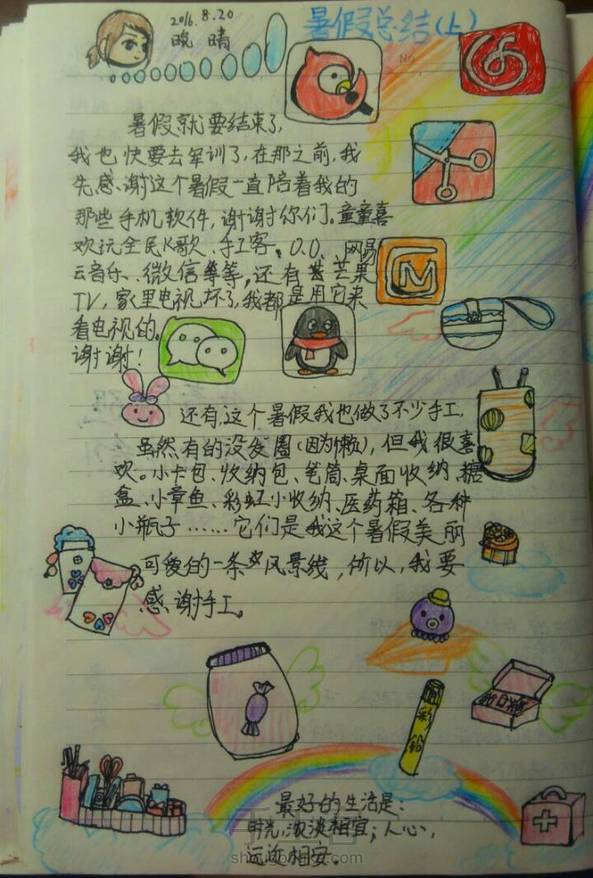 2016.8.20
晚晴
暑假总结(上)
暑假就要结束了,
我也快要去军训了,在那之前,我
先感谢这个暑假一直陪着我的
那些手机软件,谢谢你们。童童喜
欢玩全民K歌、手工客、O.O、网易
云音乐、微信等等,还有芒果
TV,家里电视坏了,我都是用它来
看电视的。
谢谢!
还有,这个暑假我也做了不少手工,
虽然有的没发圈(因为懒),但我很喜
欢。小卡包、收纳包、笔筒、桌面收纳、糖
盒、小章鱼、彩虹小收纳、医药箱、各种
小瓶子……它们是我这个暑假美丽
可爱的一条风景线,所以,我要
感谢手工。
彩铅
最好的生活是:
时光,浓淡相宜;人心,
远近相安。